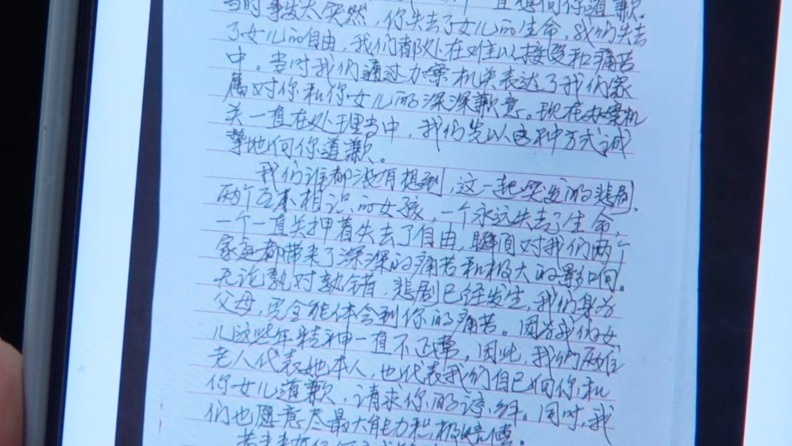 当时事发太突然，你失去了女儿的生命，我们失去
了女儿的自由，我们都处在难以接受和痛苦
中。当时我们通过办案机关表达了我们家
属对你和你女儿的深深歉意。现在办案机
关一直在处理当中，我们先以这种方式诚
挚地向你道歉。
我们谁都没有想到，这一起突发的悲剧，
两个互不相识的女孩，一个永远失去了生命，
一个一直关押着失去了自由，瞬间对我们两个
家庭都带来了深深的痛苦和极大的影响。
无论孰对孰错，悲剧已经发生，我们身为
父母，完全能体会到你的痛苦。因为我们女
儿这些年精神一直不正常。因此，我们两位
老人代表她本人，也代表我们自己向你和
你女儿道歉，请求你的谅解。同时，我
们也愿意尽最大能力积极赔偿。